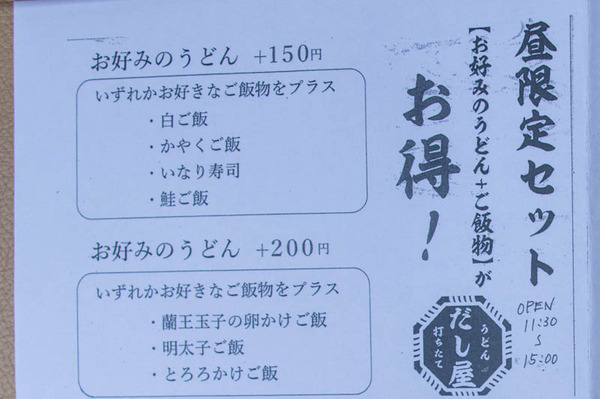 昼限定セット
【お好みのうどん+ご飯物】が
お得！
お好みのうどん +150円
いずれかお好きなご飯物をプラス
・白ご飯
・かやくご飯
・いなり寿司
・鮭ご飯
お好みのうどん +200円
いずれかお好きなご飯物をプラス
・蘭王玉子の卵かけご飯
・明太子ご飯
・とろろかけご飯
うどん
だし屋
打ちたて
OPEN
11:30
～
15:00